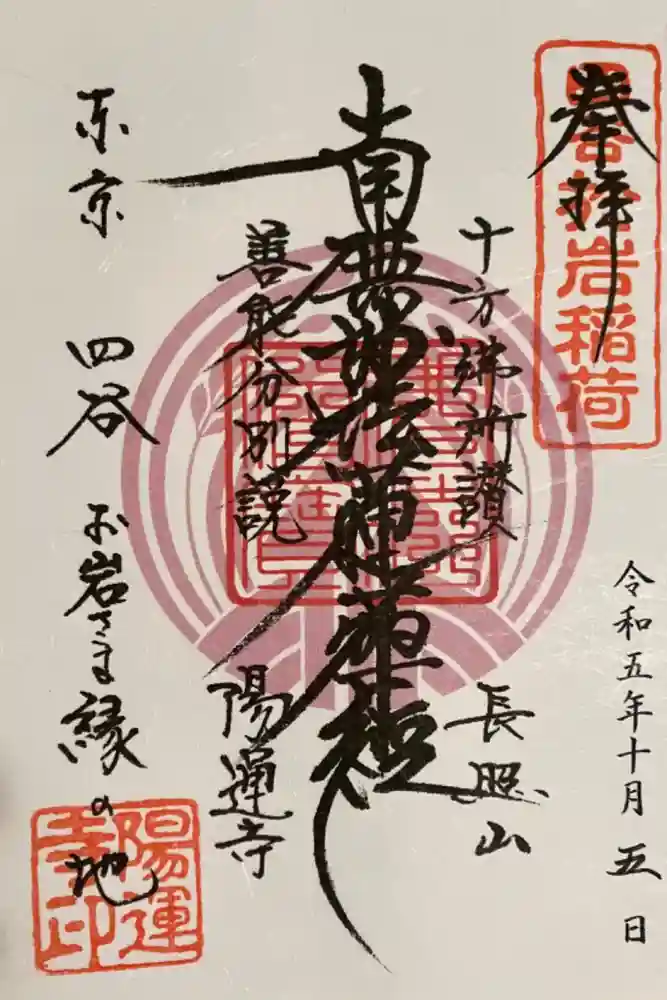 奉拝
於岩稲荷
令和五年十月五日
十方諸所讃
長照山
南無妙法蓮華経
善能分別説
陽運寺
東京 四谷 お岩さま縁の地
陽運寺印